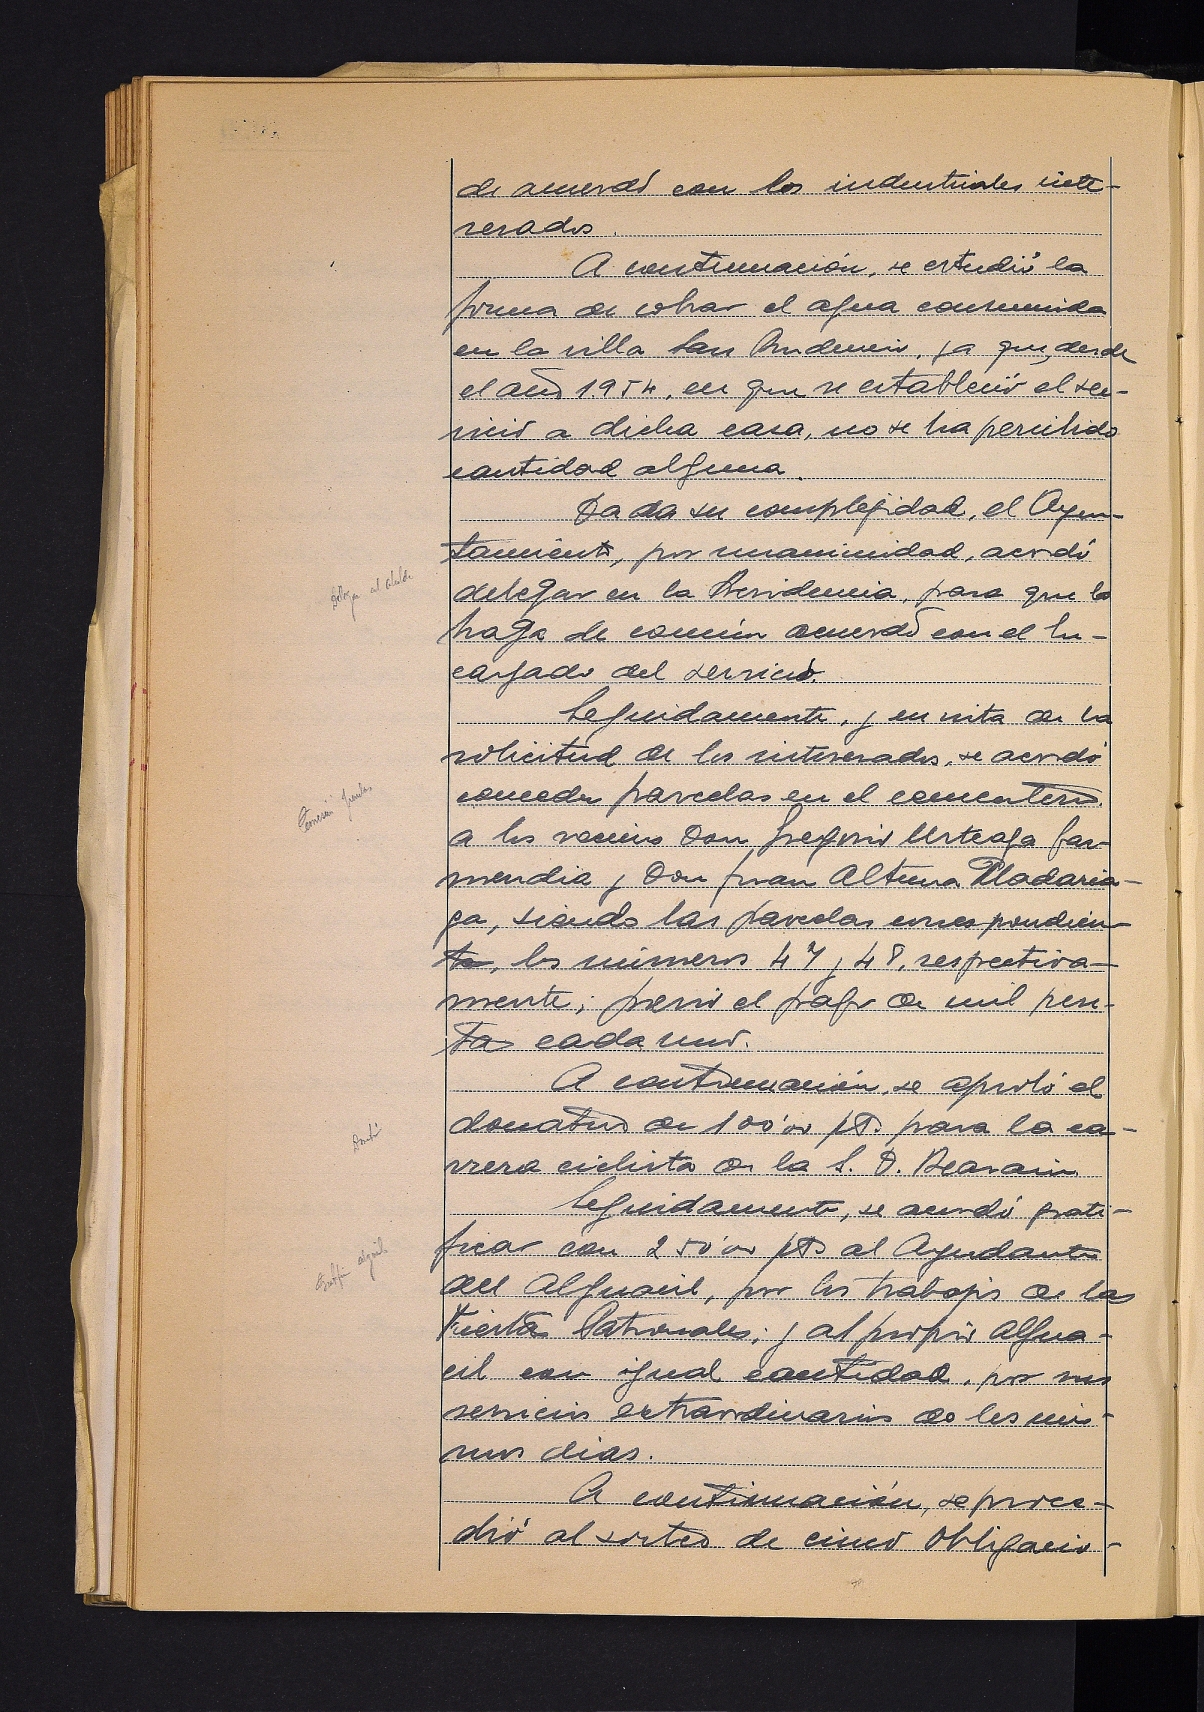 de acuerdo con los industriales inte-
resados.
A continuación, se estudió la
forma de cobrar el agua consumida
en la villa San Prudencio, ya que, desde
el año 1.954, en que se estableció el ser-
vicio a dicha casa, no se ha percibido
cantidad alguna.
Dada su complejidad, el Ayun-
tamiento, por unanimidad, acordó
Delega al alcalde
delegar en la Presidencia, para que lo
haga de común acuerdo con el En-
cargado del servicio.
Seguidamente, y en vista de la
solicitud de los interesados, se acordó
conceder parcelas en el cementerio,
a los vecinos Don Gregorio Urteaga Gar-
mendia y Don Juan Altuna Madaria-
ga, siendo las parcelas correspondien-
tes, los números 47 y 48, respectiva-
mente; previo el pago de mil pese-
tas cada uno.
A continuación, se aprobó el
donativo de 100'00 pts. para la ca-
rrera ciclista de la S. D. Beasain
Seguidamente, se acordó grati-
ficar con 250'00 pts al Ayudante
del Alguacil, por los trabajos de las
Fiestas Patronales; y al propio Algua-
cil con igual cantidad, por sus
servicios extraordinarios de los mis-
mos dias.
A continuación, se proce-
dió al sorteo de cinco Obligacio-